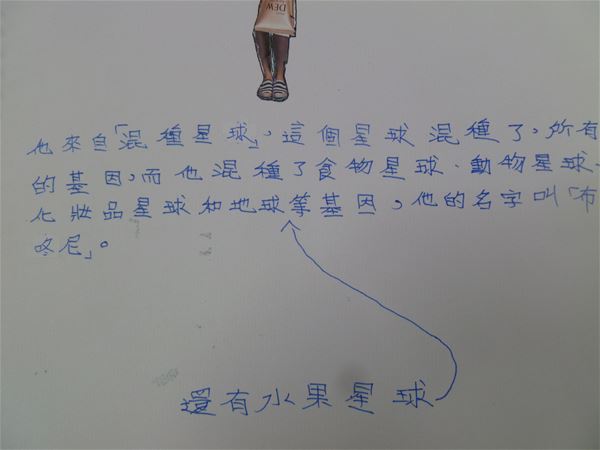 DEW
他來自「混種星球」，這個星球混種了，所有
的基因，而他混種了食物星球、動物星球、
化妝品星球和地球等基因，他的名字叫「布
咚尼」。
還有水果星球